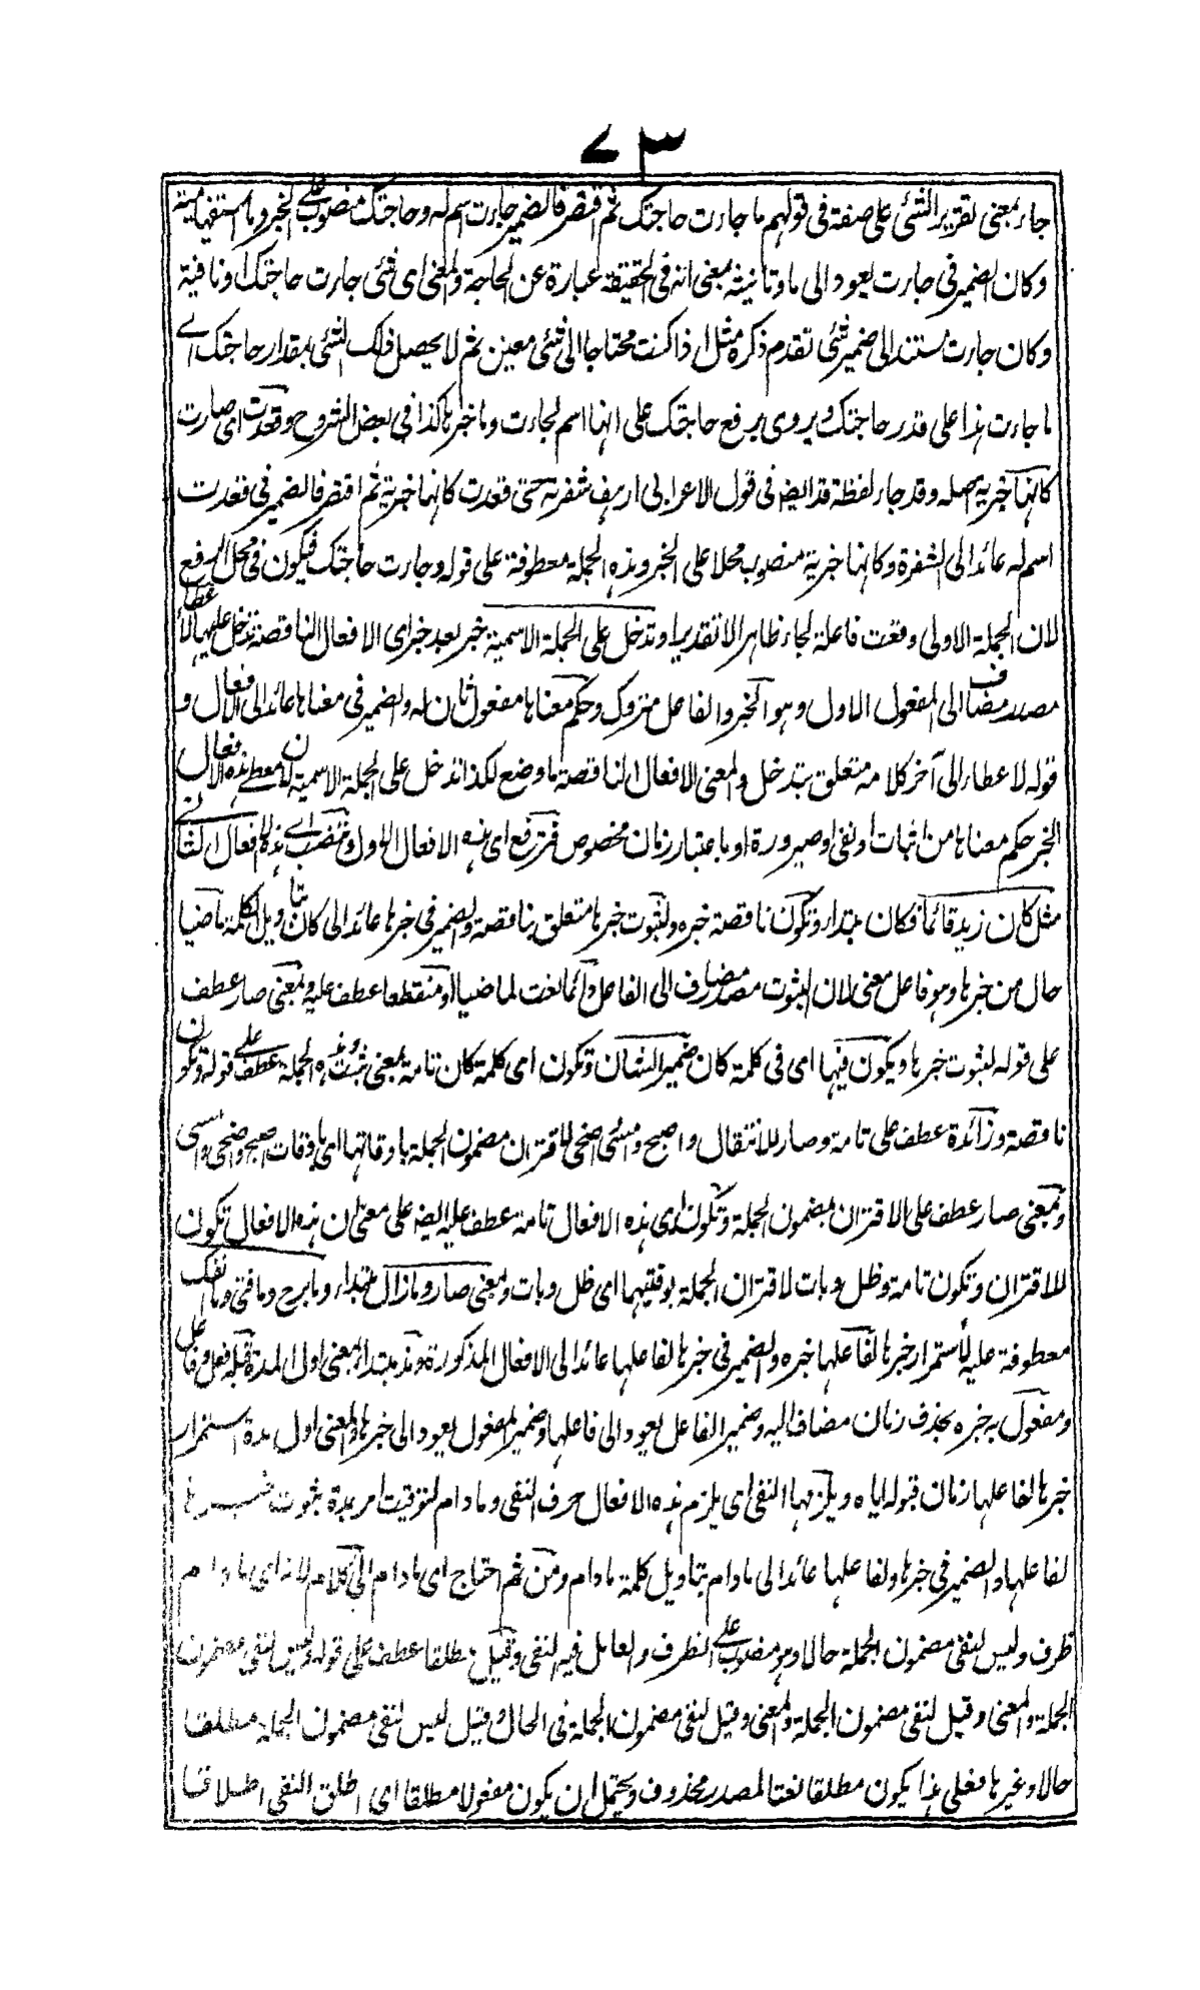 ٧٣
جاء بمعنى تقرير الشئ على صفة فى قولهم ما جاءت حاجتك ثم اقتصر فالضمير جاءت اسم له وحاجتك منصوب على الخبر وما استفهامية
وكان الضمير فى جاءت يعود الى ما وتانيثه بمعنى انه فى الحقيقة عبارة عن الحاجة والمعنى اى شئ جاءت حاجتك او نافية
وكان جاءت مستندا الى ضمير شئ تقدم ذكره مثل اذا كنت محتاجا الى شئ معين ثم لا يحصل ذلك الشئ بمقدار حاجتك اے
ما جاءت هذا على قدر حاجتك ويروى برفع حاجتك على انها اسم لجاءت وما خبرها كذا فى بعض الشروح وقعدت اى صارت
كانها خبرية وقد جاء لفظة قد ايضا فى قول الاعرابى ارهف شفرته حتى قعدت كانها خبرية ثم اقتصر فالضمير فى قعدت
اسم له عائد الى الشفرة وكانها خبرية منصوب محلا على الخبر وهذه الجملة معطوفة على قوله وجاءت حاجتك فيكون فى محل الرفع
لان الجملة الاولى وقعت فاعلة لجاء ظاهرا لا تقديرا وتدخل على الجملة الاسمية خبر بعد خبر اى الافعال الناقصة تدخل عليها لاعطاء
مصدر مضاف الى المفعول الاول وهو الخبر والفاعل متروك وحكم معناها مفعول ثان له والضمير فى معناها عائد الى الافعال و
قوله لاعطاء الى آخر كلامه متعلق بتدخل والمعنى الافعال الناقصة ما وضع لكذا تدخل على الجملة الاسمية لان معطى هذه الافعال
الخبر حكم معناها من اثبات او نفى او صيرورة او باعتبار زمان مخصوص فترفع اى هذه الافعال الاول وتنصب اے هذه الافعال الثانے
مثل كان زيد قائما فكان مبتداء وتكون ناقصة خبره ولثبوت خبرها متعلق بناقصة والضمير فى خبرها عائد الى كان بتاويل الكلمة ماضيا
حال من خبرها وهو فاعل معنى لان الثبوت مصدر مضاف الى الفاعل دائما نعت لماضيا او منقطعا عطف عليه وبمعنى صار عطف
على قوله لثبوت خبرها ويكون فيها اى فى كلمة كان ضمير الشان وتكون اى كلمة كان تامة بمعنى ثبت وهذه الجملة عطف على قوله وتكون
ناقصة وزائدة عطف على تامة وصار للانتقال واصبح وامسى واضحى لاقتران مضمون الجملة باوقاتها اى باوقات صبح وضحى وامسى
وبمعنى صار عطف على الاقتران بمضمون الجملة وتكون اى هذه الافعال تامة عطف عليه ايضا على معنى ان هذه الافعال تكون
للاقتران وتكون تامة وظل وبات لاقتران الجملة بوقتيهما اى ظل وبات وبمعنى صار وما زال مبتداء وما برح وما فتئ وما انفك
معطوفة عليه لاستمرار خبرها لفاعلها خبره والضمير فى خبرها لفاعلها عائد الى الافعال المذكورة ومذ مبتداء بمعنى اول المدة قبله فعل وفاعل
ومفعول به خبره بحذف زمان مضاف اليه وضمير الفاعل يعود الى فاعلها وضمير المفعول يعود الى خبرها والمعنى اول مدة استمرار
خبرها لفاعلها زمان قبوله اياه ويلزمها النفى اى يلزم هذه الافعال حرف النفى وما دام لتوقيت امر بمدة ثبوت خبرها
لفاعلها والضمير فى خبرها ولفاعلها عائد الى ما دام بتاويل كلمة ما دام ومن ثم احتاج اى ما دام الى كلام لانه اى ما دام
ظرف وليس لنفى مضمون الجملة حالا وهو منصوب على الظرف والعامل فيه النفى وقيل مطلقا عطف على قوله وليس لنفى مضمون
الجملة والمعنى وقيل لنفى مضمون الجملة والمعنى وقيل لنفى مضمون الجملة فى الحال وقيل ليس لنفى مضمون الجملة مطلقا
حالا وغيرها فعلى هذا يكون مطلقا نعتا لمصدر محذوف ويحتمل ان يكون مفعولا مطلقا اى اطلق النفى اطلاقا